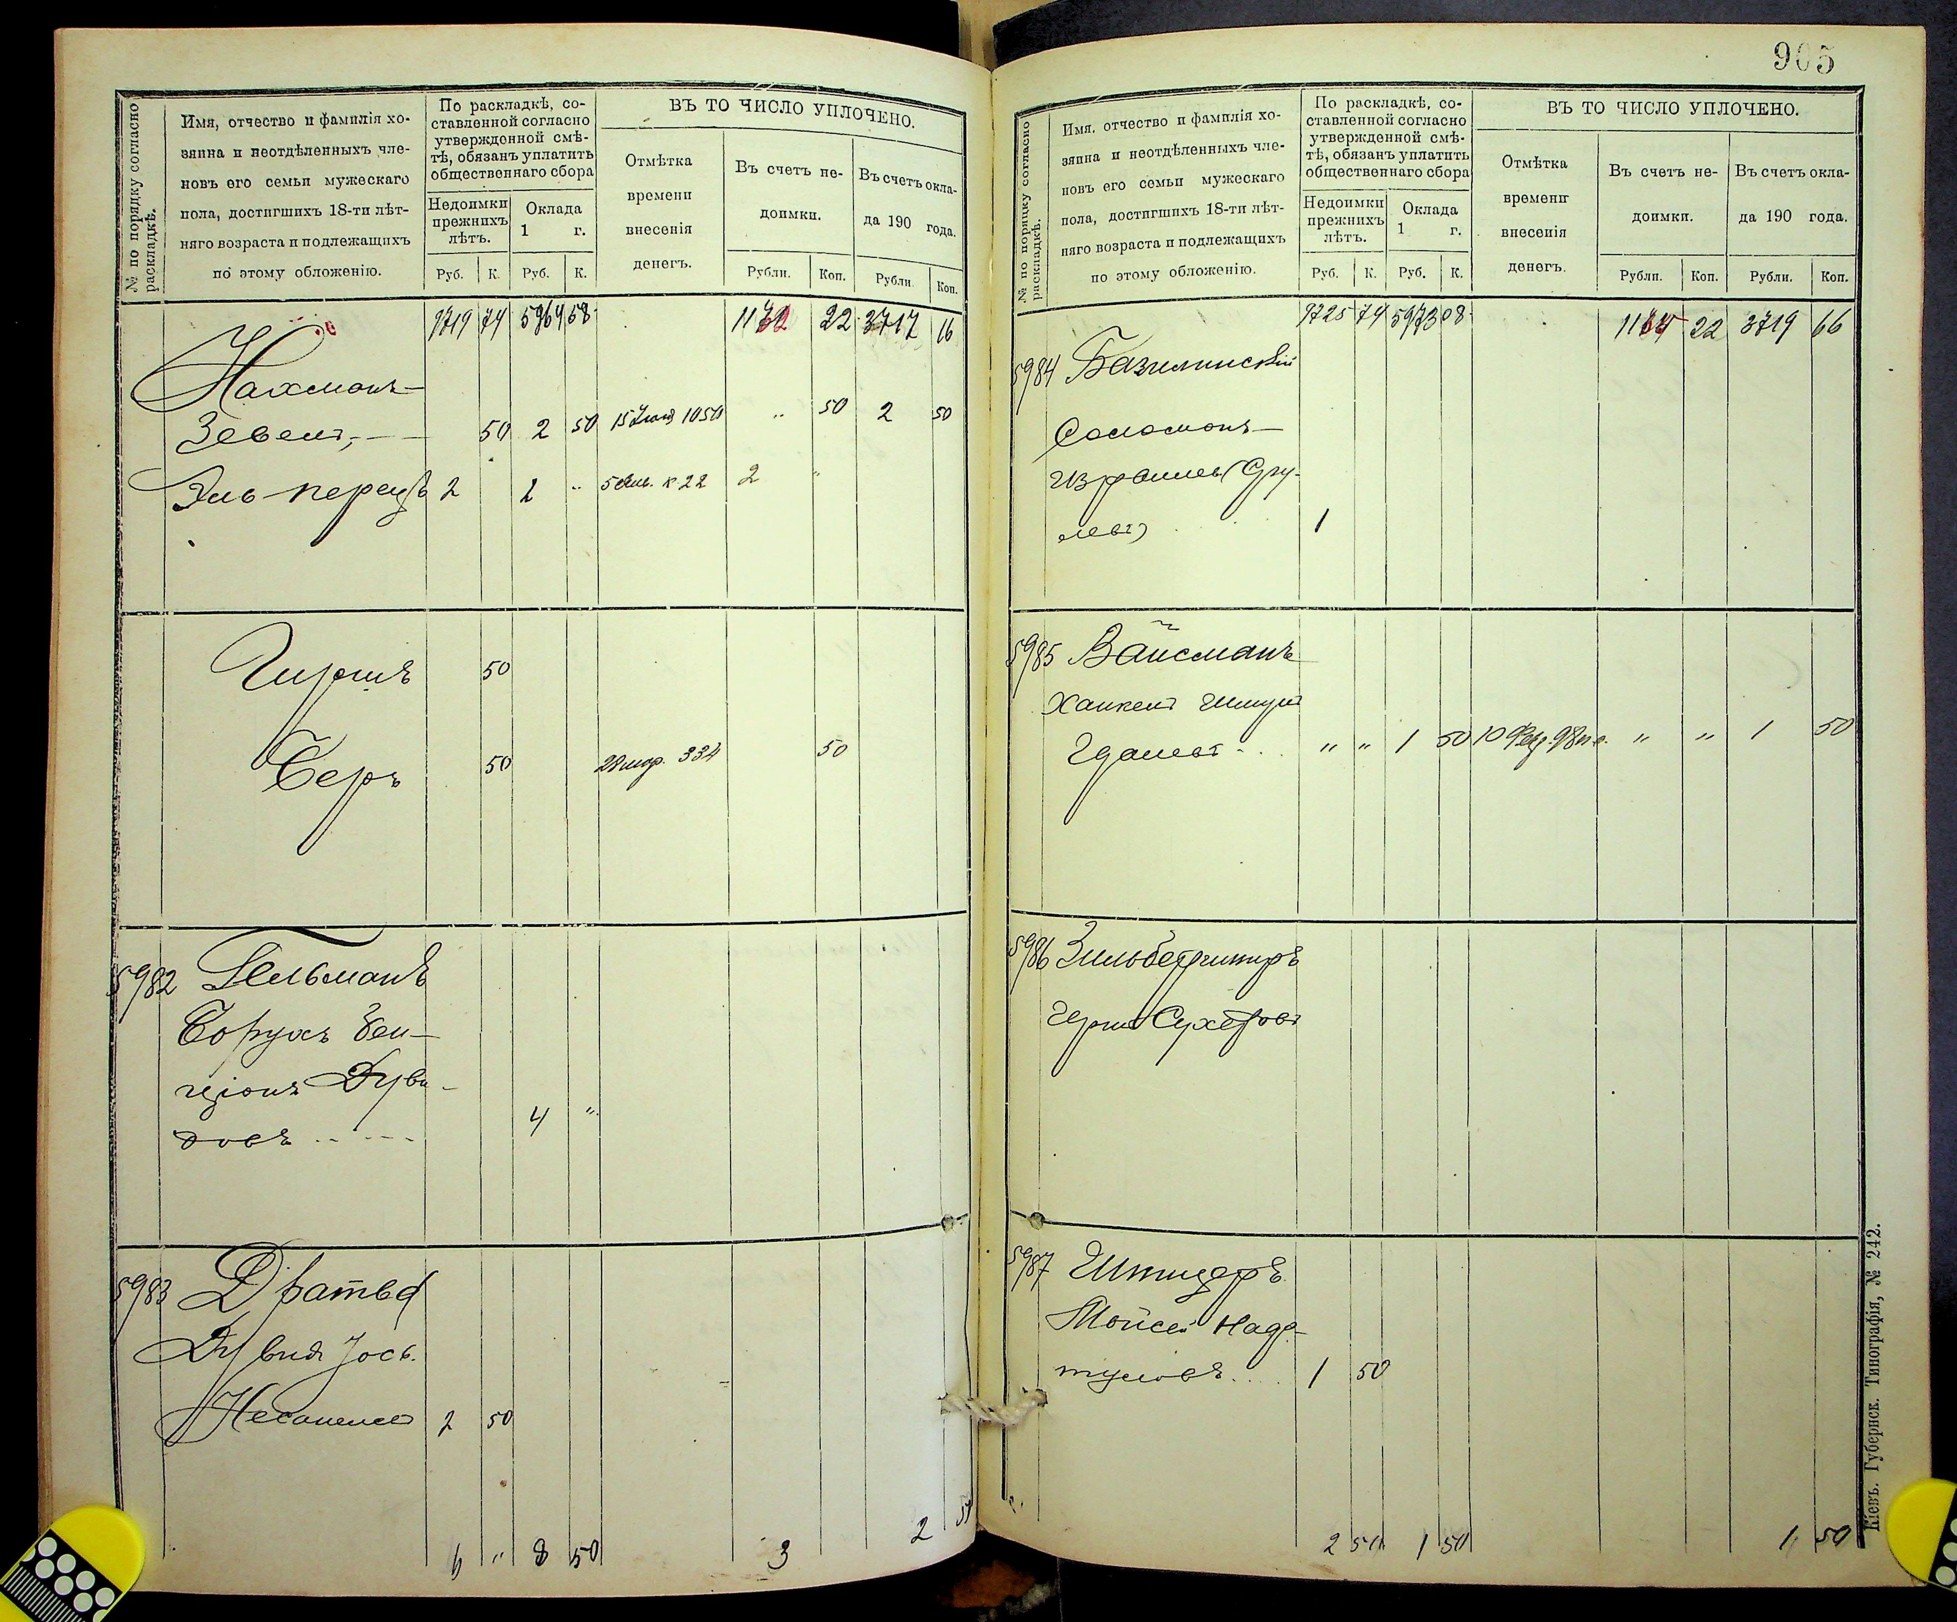 905
№ по порядку согласно раскладкѣ.
Имя, отчество и фамилія хо-
зяина и неотдѣленныхъ чле-
новъ его семьи мужескаго
пола, достигшихъ 18-ти лѣт-
няго возраста и подлежащихъ
по этому обложенію.
По раскладкѣ, со-
ставленной согласно
утвержденной смѣ-
тѣ, обязанъ уплатить
общественнаго сбора
Недоимки
прежнихъ
лѣтъ.
Оклада
1 г.
Руб. К. Руб. К.
ВЪ ТО ЧИСЛО УПЛОЧЕНО.
Отмѣтка
времени
внесенія
денегъ.
Въ счетъ не-
доимки.
Въ счетъ окла-
да 190 года.
Рубли. Коп. Рубли Коп.
9719 74 5964 58 22 3717 16
Нахманъ
Зевель, 50 2 50 15 1050 " 50 2 50
Эль-перецъ 2 2 " 5 22 2 "
Гиршъ 50
Беръ 50 22 мар. 334 50
5982 Гельманъ
Борухъ Бен-
ціонъ Дуви-
довъ 4 "
5983 Дратва
Дувид Іось.
2 50
6 " 8 50 3 2 50
№ по порядку согласно раскладкѣ.
Имя, отчество и фамилія хо-
зяина и неотдѣленныхъ чле-
новъ его семьи мужескаго
пола, достигшихъ 18-ти лѣт-
няго возраста и подлежащихъ
по этому обложенію.
По раскладкѣ, со-
ставленной согласно
утвержденной смѣ-
тѣ, обязанъ уплатить
общественнаго сбора
Недоимки
прежнихъ
лѣтъ.
Оклада
1 г.
Руб. К. Руб. К.
ВЪ ТО ЧИСЛО УПЛОЧЕНО.
Отмѣтка
времени
внесенія
денегъ.
Въ счетъ не-
доимки.
Въ счетъ окла-
да 190 года.
Рубли. Коп. Рубли. Коп.
9725 74 5973 08 22 3719 66
5984 Базилинскій
Соломонъ
Израилев (Сру-
левъ) 1
5985 Вайсманъ
Ханкель
" " 1 50 10 " " 1 50
5986 Зильбершпицъ
5987 Шпицеръ
Мойсей Наф-
туловъ 1 50
2 50 1 50 1 50
Кіевъ. Губернск. Типографія, № 242.